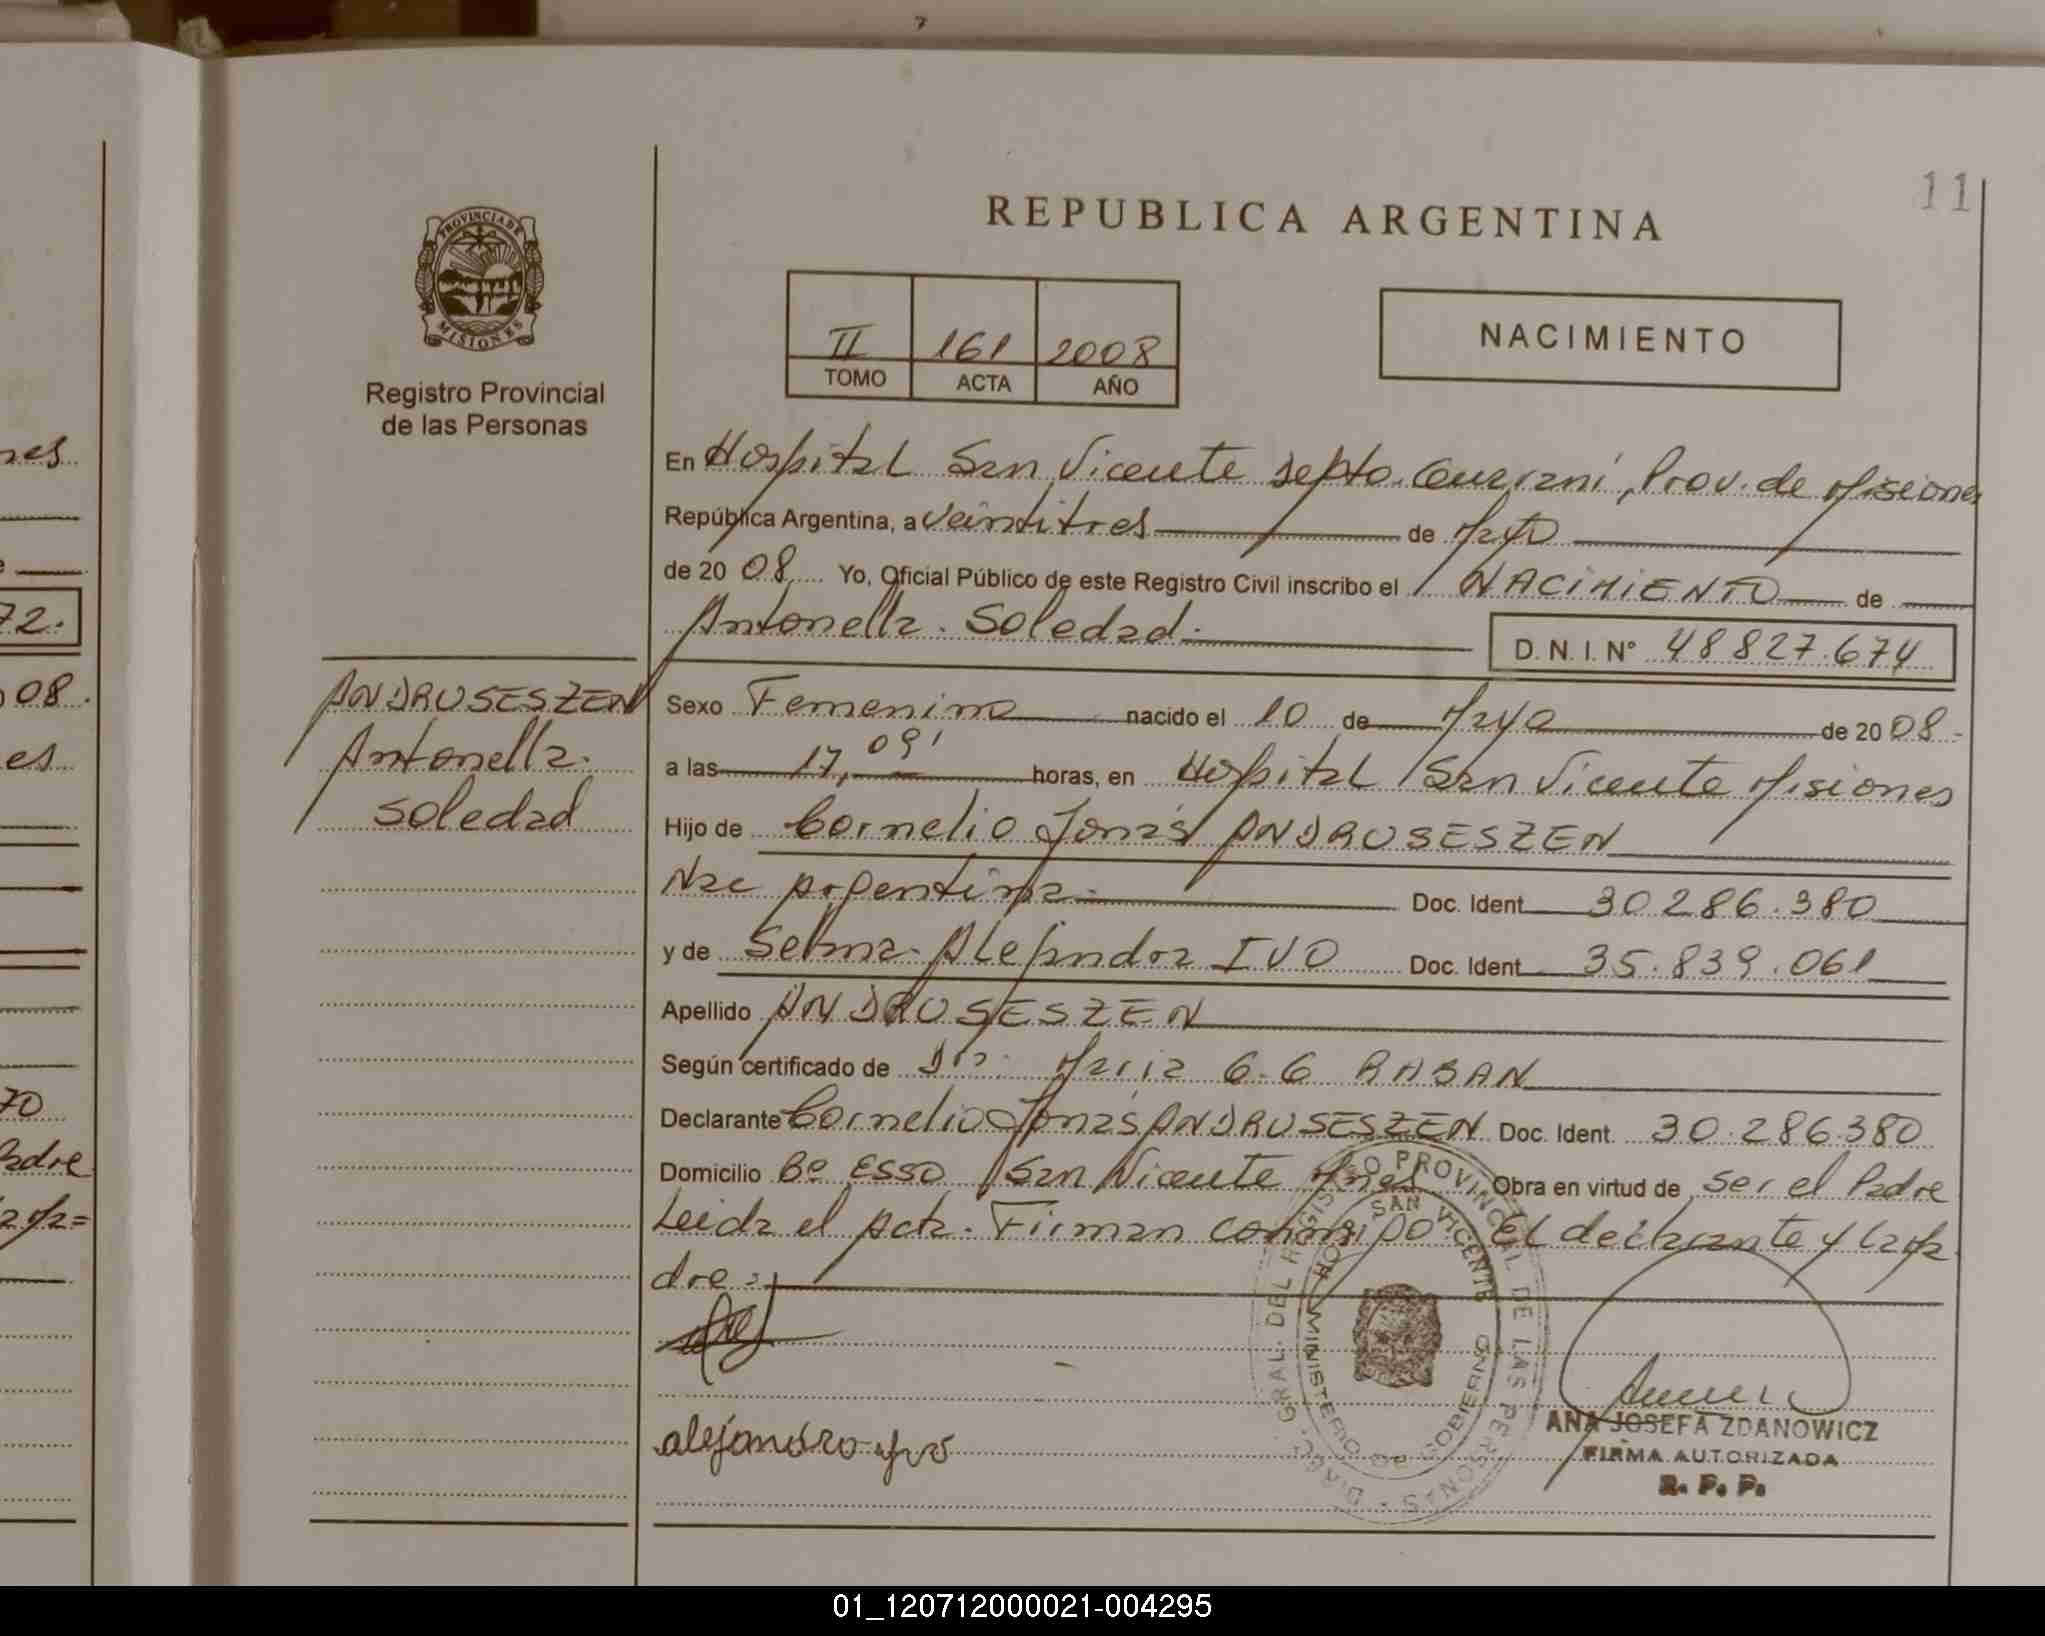 11
REPUBLICA ARGENTINA
PROVINCIA DE
MISIONES
Registro Provincial
de las Personas
II 161 2008
TOMO ACTA AÑO
NACIMIENTO
En Hospital San Vicente Depto. Guarani, Prov. de Misiones
República Argentina, a veintitres de Mayo
de 20 08 Yo, Oficial Público de este Registro Civil inscribo el NACIMIENTO de
Antonella. Soledad.
D. N. I. N° 48827.674
ANDRUSESZEN
Antonella.
Soledad
Sexo Femenino nacido el 10 de Mayo de 20 08.-
a las 17, 09' horas, en Hospital San Vicente Misiones
Hijo de Cornelio Jonás ANDRUSESZEN
Nac Argentina.- Doc. Ident 30 286.380
y de Selma- Alejandra IVO Doc. Ident 35.839.061
Apellido ANDRUSESZEN
Según certificado de Dra. Maria G.G RABAN
Declarante Cornelio Jonás ANDRUSESZEN Doc. Ident. 30.286.380
Domicilio Bº ESSO San Vicente Mnes Obra en virtud de ser el Padre
Leida el Acta. Firman conmigo El declarante y la Ma
dre =
alejandra ivo
DIREC. GRAL. DEL REGISTRO PROVINCIAL DE LAS PERSONAS
SAN VICENTE
MINISTERIO DE GOBIERNO
ANA JOSEFA ZDANOWICZ
FIRMA AUTORIZADA
R. P. P.
nes
72.
08.
es
70
Padre
01_120712000021-004295